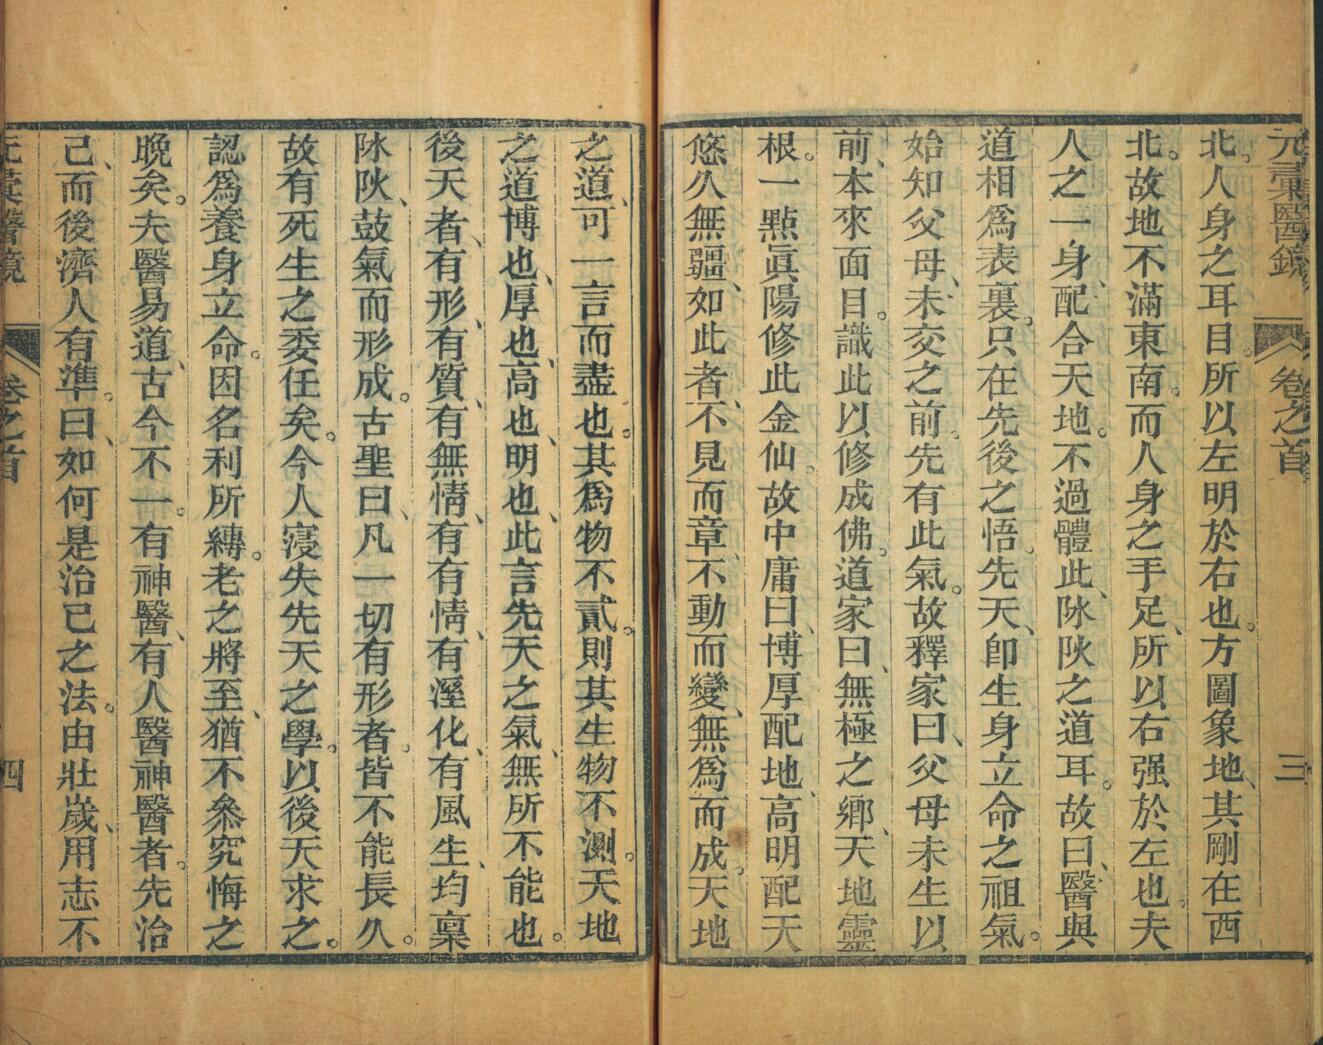 元彙醫鏡 卷之首 三
北。人身之耳目。所以左明於右也。方圖象地、其剛在西
北。故地不滿東南。而人身之手足、所以右强於左也。夫
人之一身、配合天地。不過體此、陎阦之道耳。故曰、醫與
道相爲表裏。只在先後之悟。先天、卽生身立命之祖氣。
始知父母、未交之前。先有此氣。故釋家曰、父母未生以
前、本來面目。識此以修成佛。道家曰、無極之鄉、天地靈
根。一點眞陽修此金仙。故中庸曰、博厚配地、高明配天
悠久無疆、如此者、不見而章、不動而變、無爲而成。天地
之道、可一言而盡也。其爲物不貳。則其生物不測。天地
之道博也、厚也、高也、明也、此言先天之氣、無所不能也。
後天者、有形、有質、有無情、有有情、有溼化、有風生、均稟
陎阦、鼓氣而形成。古聖曰、凡一切有形者。皆不能長久。
故有死生之委任矣。今人寖失先天之學。以後天求之。
認爲養身立命。因名利所縳。老之將至、猶不叅究悔之
晚矣。夫醫易道、古今不一。有神醫、有人醫神醫者。先治
己、而後濟人有準。曰、如何是治己之法。由壯嵗、用志不
元彙醫鏡 卷之首 四